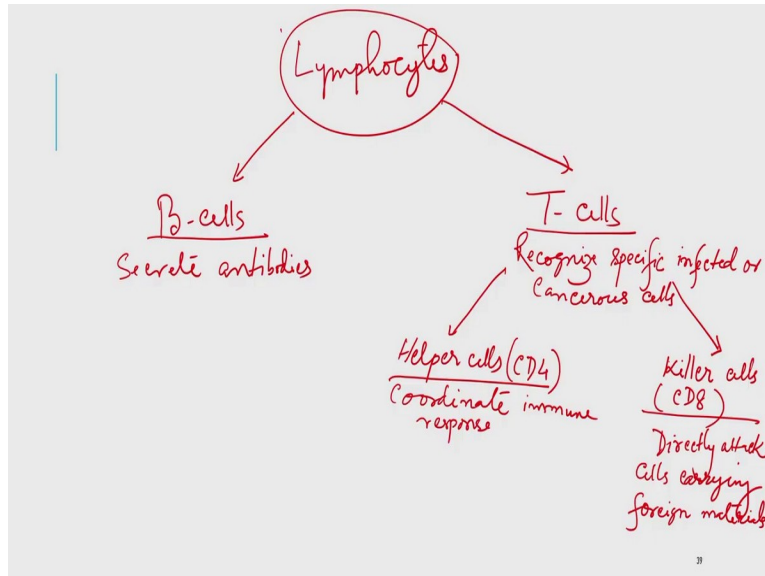 Lymphocytes
B-cells
Secrete antibodies
T-cells
Recognize specific infected or
Cancerous cells
Helper cells (CD4)
Coordinate immune
response
Killer cells
(CD8)
Directly attack
Cells carrying
foreign materials
39